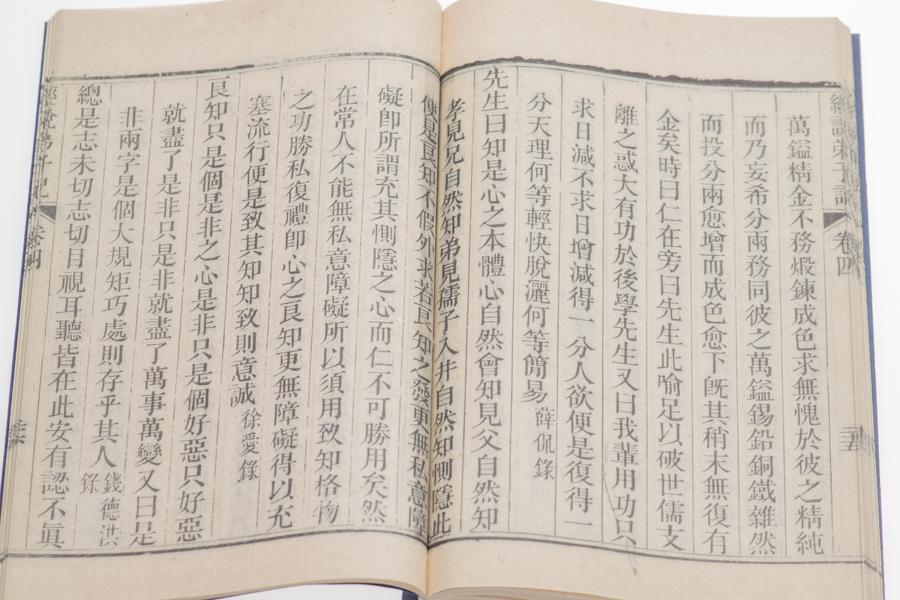 萬鎰精金不務煅鍊成色求無愧於彼之精純
而乃妄希分兩務同彼之萬鎰錫鉛銅鐵雜然
而投分兩愈增而成色愈下旣其稍末無復有
金矣時曰仁在旁曰先生此喻足以破世儒支
離之惑大有功於後學先生又曰我輩用功只
求日減不求日增減得一分人欲便是復得一
分天理何等輕快脫灑何等簡易 薛侃錄
先生曰知是心之本體心自然會知見父自然知
孝見兄自然知弟見孺子入井自然知惻隱此
便是良知不假外求若良知之發更無私意障
礙卽所謂充其惻隱之心而仁不可勝用矣然
在常人不能無私意障礙所以須用致知格物
之功勝私復禮卽心之良知更無障礙得以充
塞流行便是致其知知致則意誠 徐愛錄
良知只是個是非之心是非只是個好惡只好惡
就盡了是非只是非就盡了萬事萬變又曰是
非兩字是個大規矩巧處則存乎其人 錢德洪錄
總是志未切志切目視耳聽皆在此安有認不眞
卷四
二五
卷四